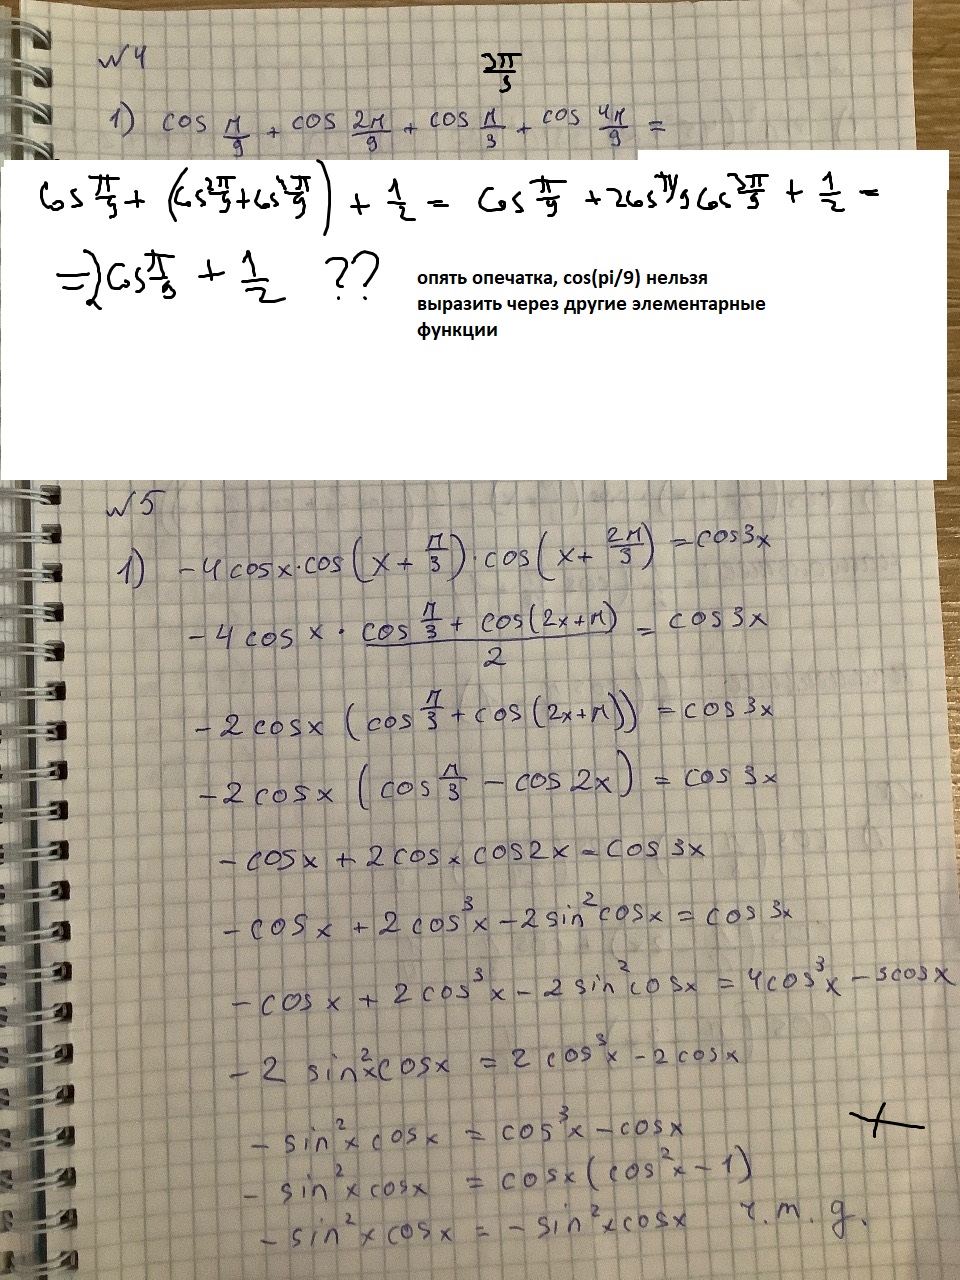 №4
3π/9
1) cos π/9 + cos 2π/9 + cos π/3 + cos 4π/9 =
cos π/9 + (cos 2π/9 + cos 4π/9) + 1/2 = cos π/9 + 2cos π/9 cos 3π/9 + 1/2 =
= 2cos π/9 + 1/2 ??
опять опечатка, cos(pi/9) нельзя
выразить через другие элементарные
функции
№5
1) -4cosx·cos(x + π/3)·cos(x + 2π/3) = cos3x
-4cosx · (cos π/3 + cos(2x+π))/2 = cos3x
-2cosx (cos π/3 + cos(2x+π)) = cos3x
-2cosx (cos π/3 - cos2x) = cos3x
-cosx + 2cosx cos2x = cos3x
-cosx + 2cos³x - 2sin²cosx = cos3x
-cosx + 2cos³x - 2sin²cosx = 4cos³x - 3cosx
-2sin²xcosx = 2cos³x - 2cosx
-sin²xcosx = cos³x - cosx
-sin²xcosx = cosx(cos²x - 1)
-sin²xcosx = -sin²xcosx ч.т.д.
+